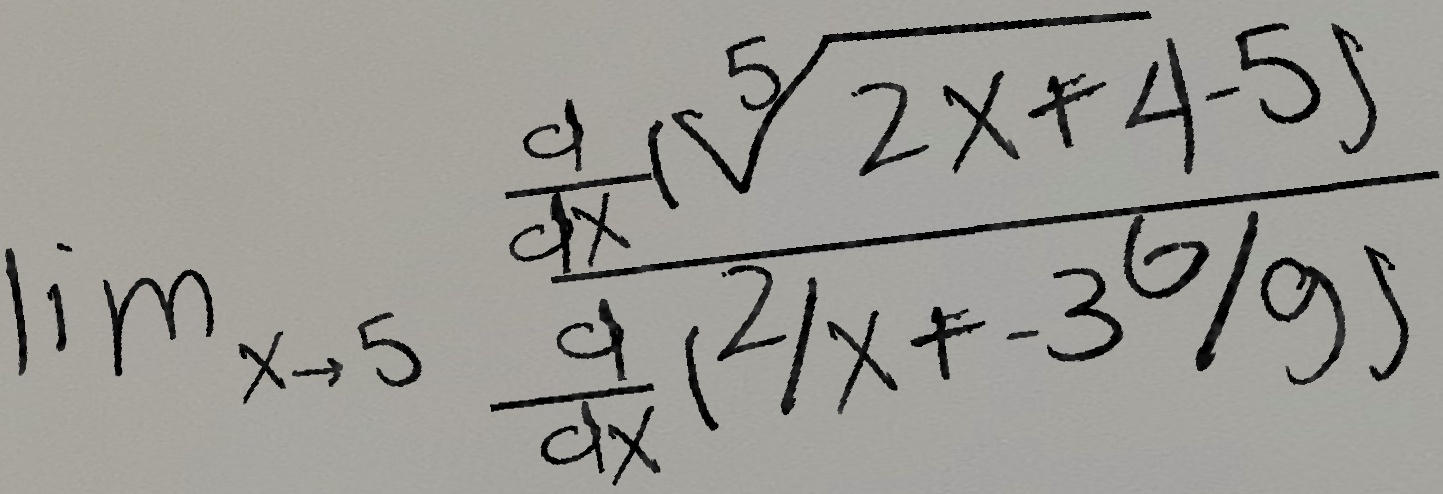 lim x→5 d/dx (⁵√2x+4-5) / d/dx (2/x + -3^6/9)